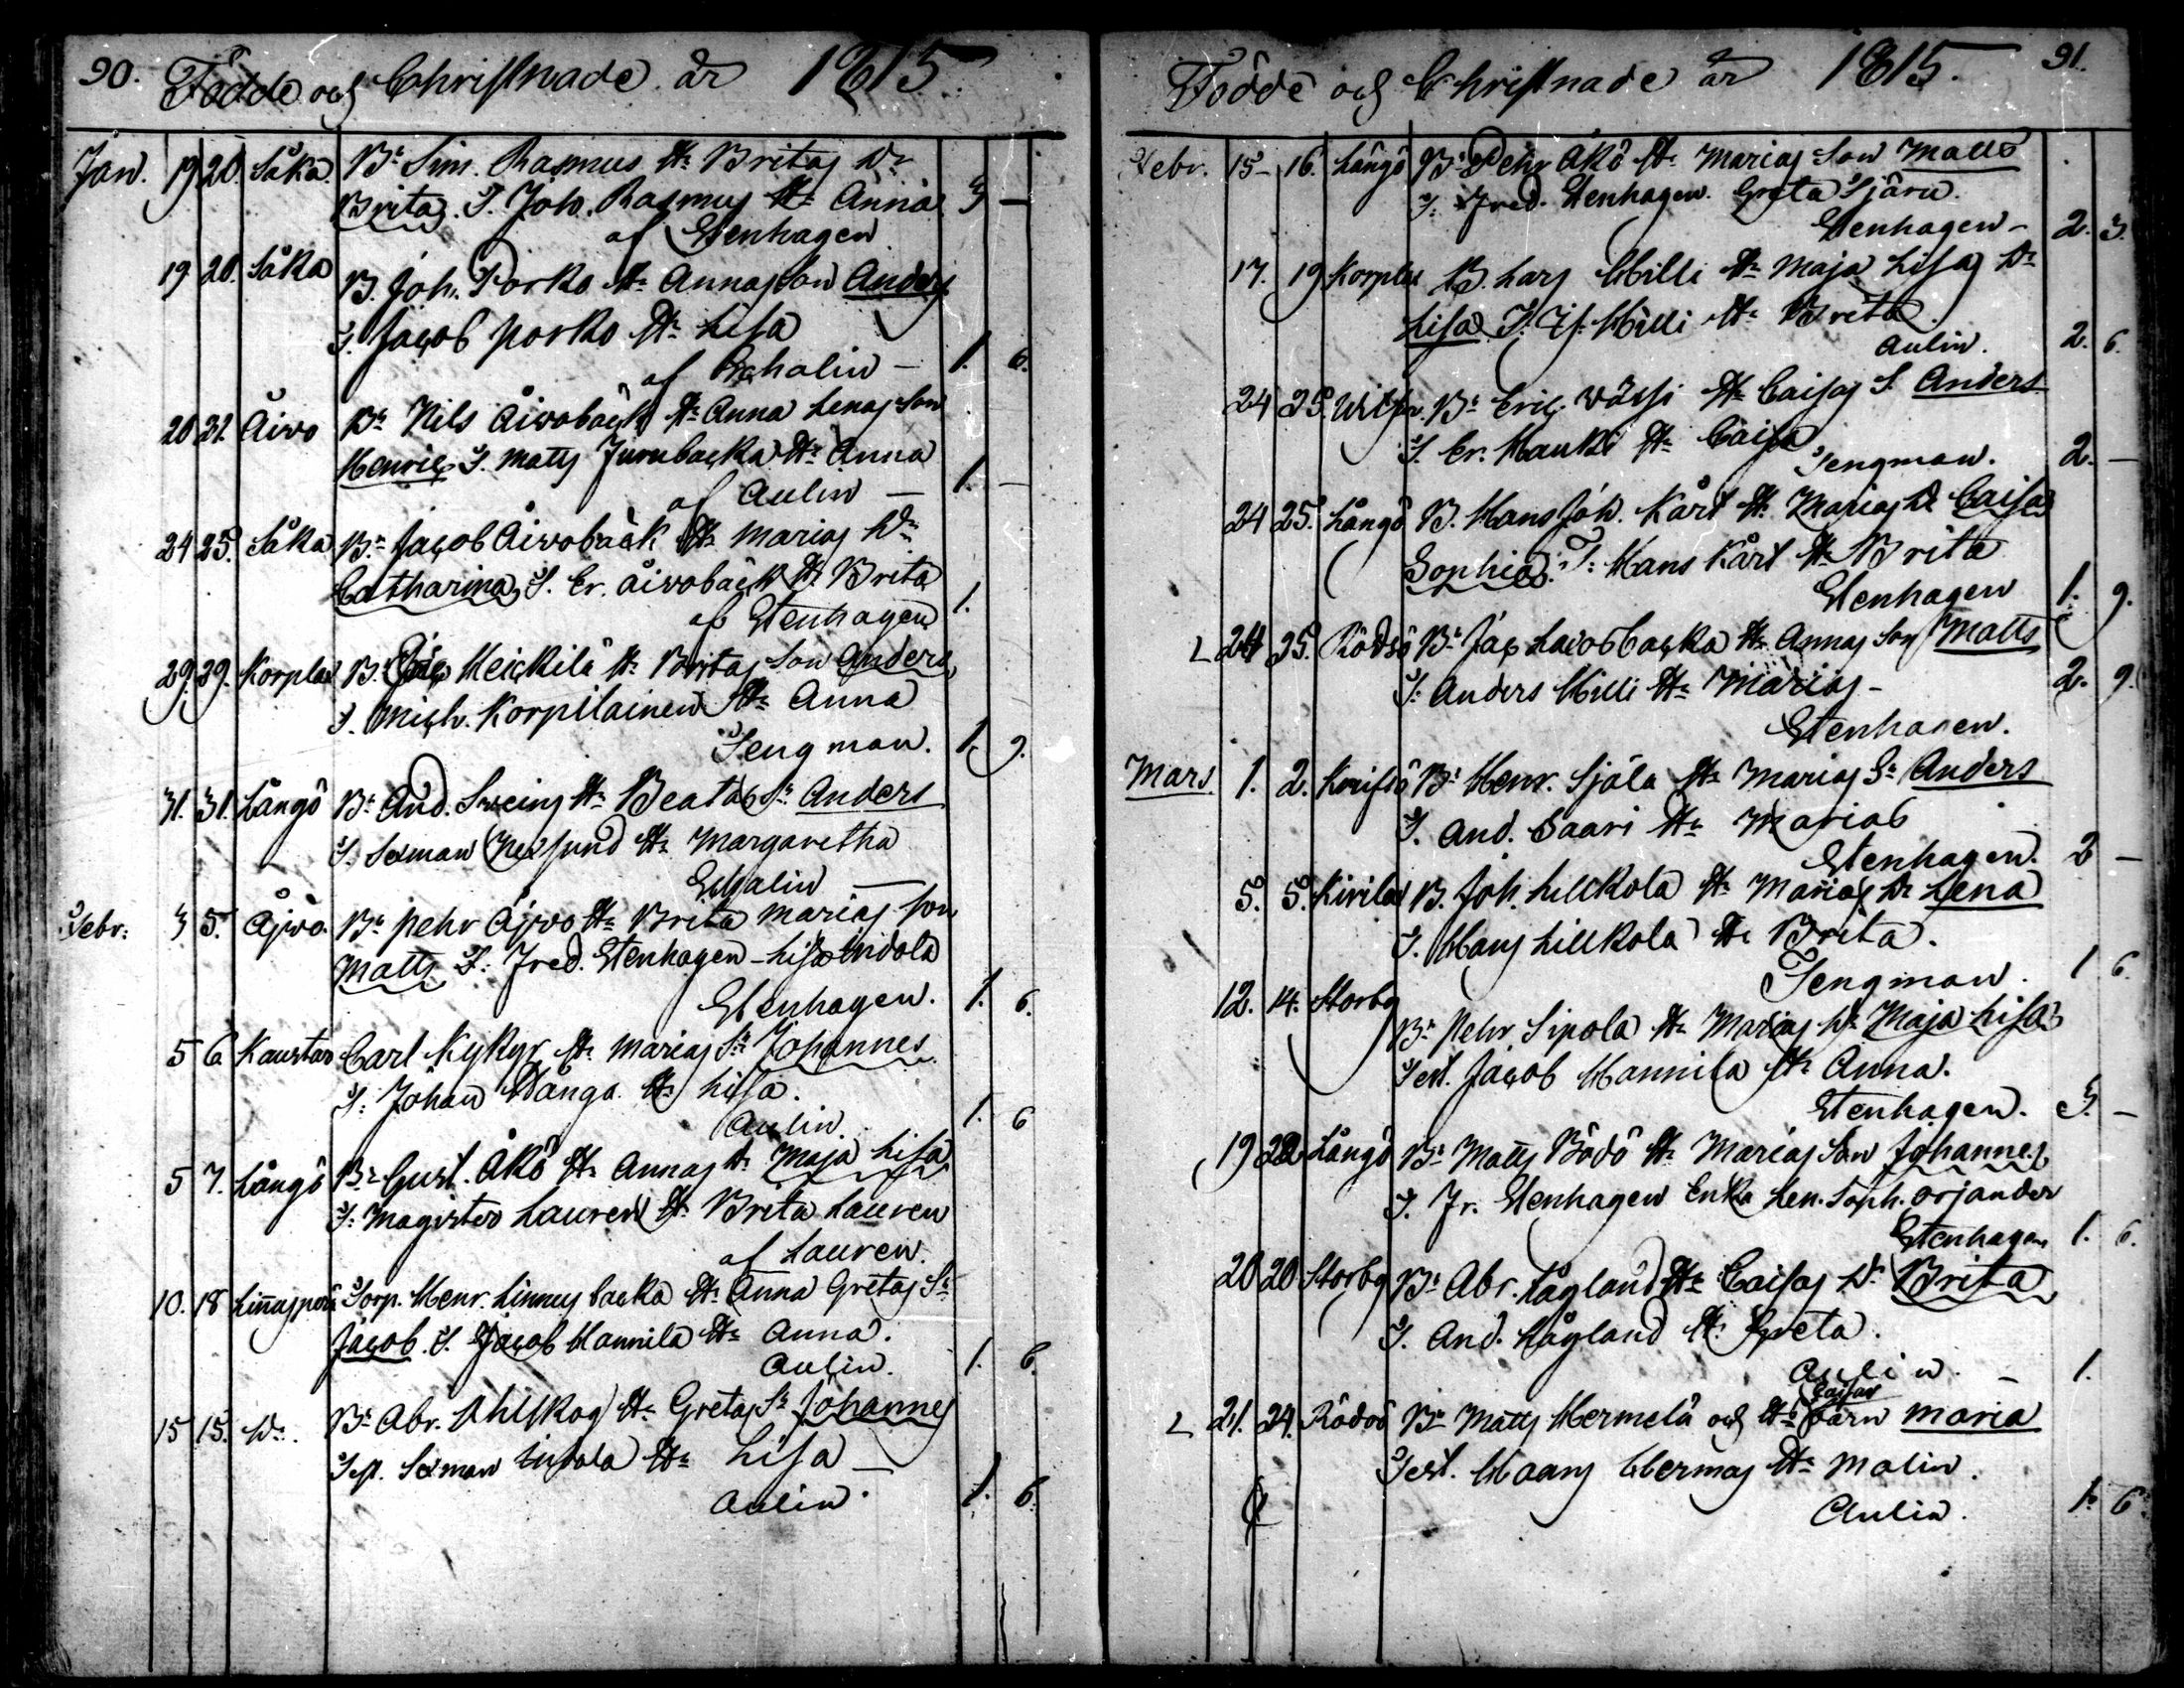 90. Födde och Christnade år 1815.
Jan. 19 20. Såka. Br Sim. Rasmus Hr Britas Dr
Britas. T. Joh. Rasmus Hr Anna 3 —
af Stenhagen
19 20. Såka B. Joh. Porko Hr Annas son Anders
T. Jacob Porko Hr Lisa
af Echalin — 1. 6.
20 21. Åivo Br Nils Åivobäck Hr Anna Lenas son
Henric T. Matts Hr Anna
af Aulin — 1. —
24 25. Såka Br Jacob Åivobäck Hr Marias Dr
Catharina, T. Er. Åivobäck Hr Brita
af Stenhagen 1.
29. 29. Korplax B. Heickilä Hr Britas son Anders
T. Mich. Korpilainen Hr Anna
Tengman. 1. 9.
31. 31. Långö Br And. Sveins Hr Beatas Sn Anders
T. Sexman Hr Margaretha
Echalin —
Febr: 3 5. Åjvo. Br Pehr Åjvo Hr Brita Marias son
Matts T: Fred. Stenhagen - Lisa Indola
Stenhagen. 1. 6.
5 6 Kaustar Carl Kykyr Hr Marias Sn Johannes
T: Johan Hr Lisa.
Aulin. 1. 6
5 7. Långö Br Gust. Åkö Hr Annas Dr Maja Lisa
T: Magister Lauren Hr Brita Lauren
af Lauren.
10. 18 Linnusperä Torp. Henr. Linnusbacka Hr Anna Gretas Sn
Jacob. T. Jacob Mannila Hr Anna.
Aulin. 1. 6.
15 15. Do. Br Abr. Ahlskog Hr Gretas Sn Johannes
Test. Sexman Hr Lisa —
Aulin. 1. 6.
Födde och Christnade år 1815. 91.
Febr. 15 16. Långö Br Pehr Åkö Hr Marias Son Matts
T. Fred. Stenhagen. Greta
Stenhagen - 2. 3.
17. 19 Korplax B. Lars Hilli Hr Maja Lisas Dr
Lisa T. Hilli Hr Brita.
Aulin. 2. 6.
24 25. Br Eric Hr Caisas S. Anders
T. Er. Hauki Hr Caisa
Tengman. 2. —
24 25. Långö B. Hans Joh. Kårt Hr Marias Dr Caisa
Sophia. T: Hans Kårt Hr Brita
Stenhagen 1. 9.
24 25. Rödsö Br Jac. Hr Annas Son Matts
T. Anders Hilli Hr Marias - 2. 9.
Stenhagen.
Mars. 1. 2. Br Henr. Sjöla Hr Marias Sn Anders
T. And. Saari Hr Marias
Stenhagen. 2 —
5. 5. Kirilax B. Joh. Lillkola Hr Marias Dr Lena
T. Hans Lillkola Hr Brita.
Tengman. 1 6.
12. 14. Storby Br Pehr Sipola Hr Marias Dr Maja Lisa
Test. Jacob Mannila Hr Anna.
Stenhagen. 3. —
19 22 Långö Br Matts Bödö Hr Marias Son Johannes
T. Fr. Stenhagen Enka Len. Soph. Orjander
Stenhagen 1. 6.
20 20 Storby Br Abr. Hågland Hr Caisas Dr Brita
T. And. Hågland Hr Greta.
Aulin. — 1.
21. 24. Rödsö Br Matts Hermelä och Hr Caisas barn Maria
Test. Hans Hermas Hr Malin.
Aulin. 1. 6.